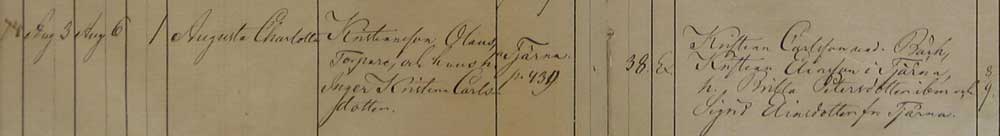 Aug 3 Aug 6 1 Augusta Charlotta
Kristiansson Olaus,
Torpare, och hans h.
Inger Kristina Carls-
dotter.
Tjärna
p. 439
38. Ex
Kristian Carlsson Bäck,
Kristian Einarson i Tjärna,
h. Britta Petersdotter ibm och
Sigrid Einarsdotter fr Tjärna.